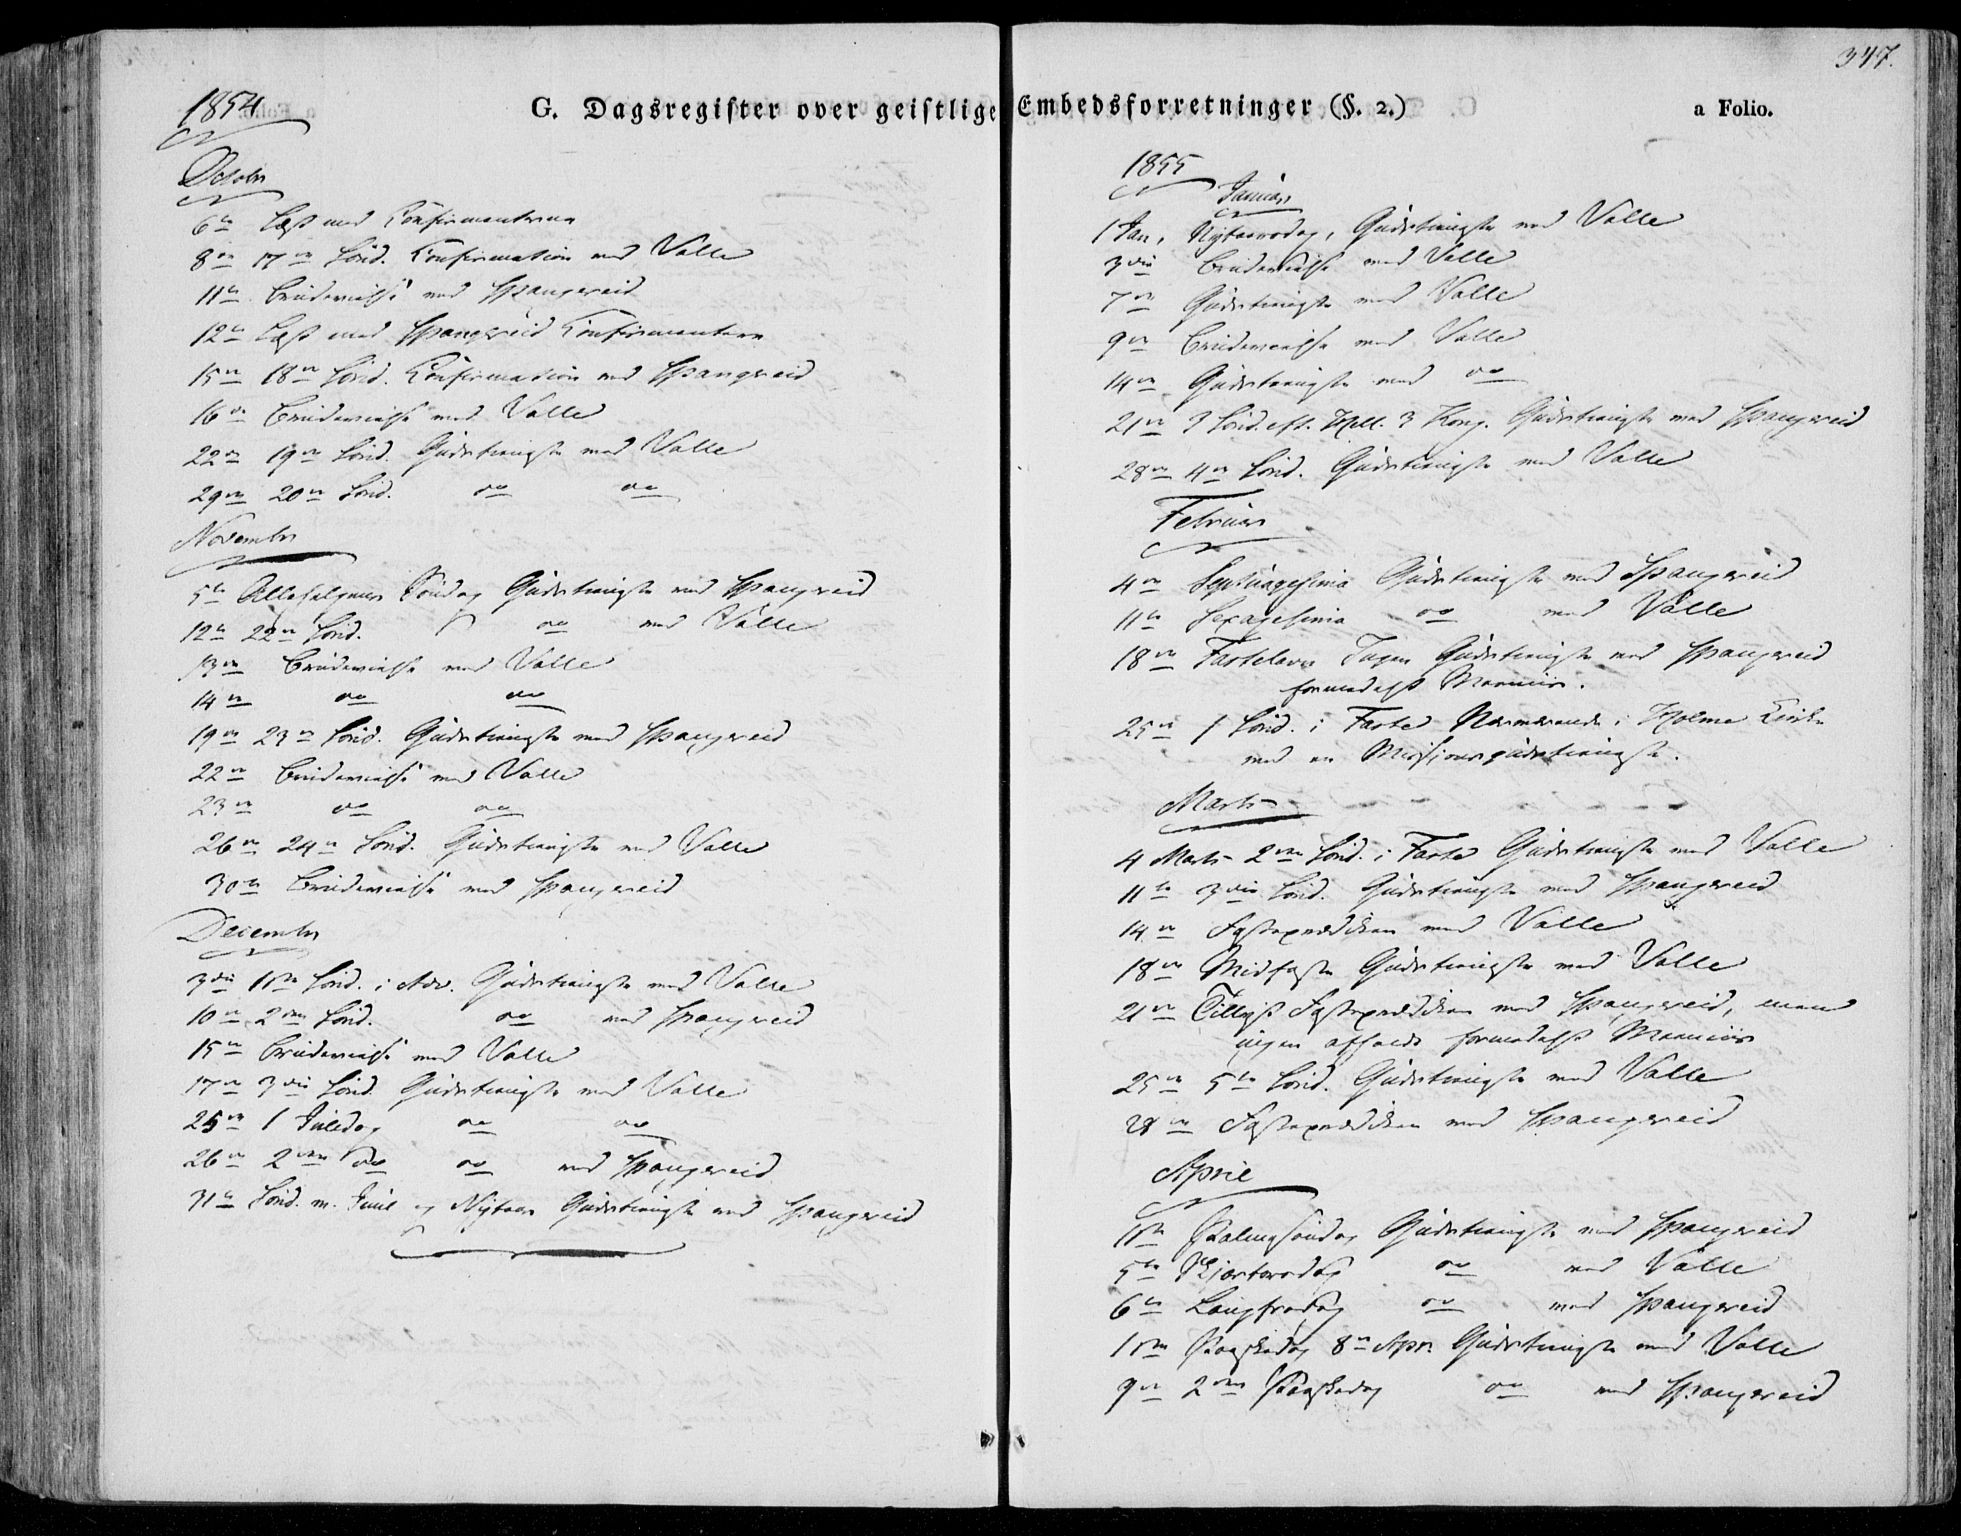 347.
G. Dagsregister over geistlige Embedsforretninger (§. 2.)
a Folio.
1854
October
6te Læst med Confirmanterne
8de 17de Sönd. Confirmation ved Valle
11te Brudevielse ved Spangereid
12te Læst med Spangereid Confirmanterne
15de 18de Sönd. Confirmation ved Spangereid
16de Brudevielse ved Valle
22de 19de Sönd. Gudstieneste ved Valle
29de 20de Sönd. do do
November
5te Allehelgens Söndag Gudstieneste ved Spangereid
12te 22de Sönd. do ved Valle
13de Brudevielse ved Valle
14de do do
19de 23de Sönd. Gudstieneste ved Spangereid
22de Brudevielse ved Valle
23de do do
26de 24de Sönd. Gudstieneste ved Valle
30te Brudevielse ved Spangereid
December
3die 1ste Sönd. i Adv. Gudstieneste ved Valle
10de 2den Sönd. do ved Spangereid
15de Brudevielse ved Valle
17de 3die Sönd. Gudstieneste ved Valle
25de 1 Juledag do do
26de 2den do do ved Spangereid
31te Sönd. m. Juul og Nytaar Gudstieneste ved Spangereid
1855
Januar
1 Jan. Nytaarsdag, Gudstieneste ved Valle
3die Brudevielse ved Valle
7de Gudstieneste ved Valle
9de Brudevielse ved Valle
14de Gudstieneste ved do
21de 3 Sönd. eft. Hell. 3 Kong. Gudstieneste ved Spangereid
28de 4de Sönd. Gudstieneste ved Valle
Februar
4de Septuagesima Gudstieneste ved Spangereid
11te Sexagesima do ved Valle
18de Fastelavn Ingen Gudstieneste ved Spangereid
formedelst
25de 1 Sönd. i Faste Nærværende i Holme Kirke
ved en Missionsgudstieneste.
Marts
4 Marts 2den Sönd. i Faste Gudstieneste ved Valle
11te 3die Sönd. Gudstieneste ved Spangereid
14de Fasteprædiken ved Valle
18de Midfaste Gudstieneste ved Valle
21de Tillyst Fasteprædiken ved Spangereid, men
ingen afholdt formedelst
25de 5te Sönd. Gudstieneste ved Valle
28de Fasteprædiken ved Spangereid
April
1ste Palmesöndag Gudstieneste ved Spangereid
5te Skjærtorsdag do ved Valle
6te Langfredag do ved Spangereid
1ste Paaskedag 8de Apr. Gudstieneste ved Valle
9de 2den Paaskedag do ved Spangereid